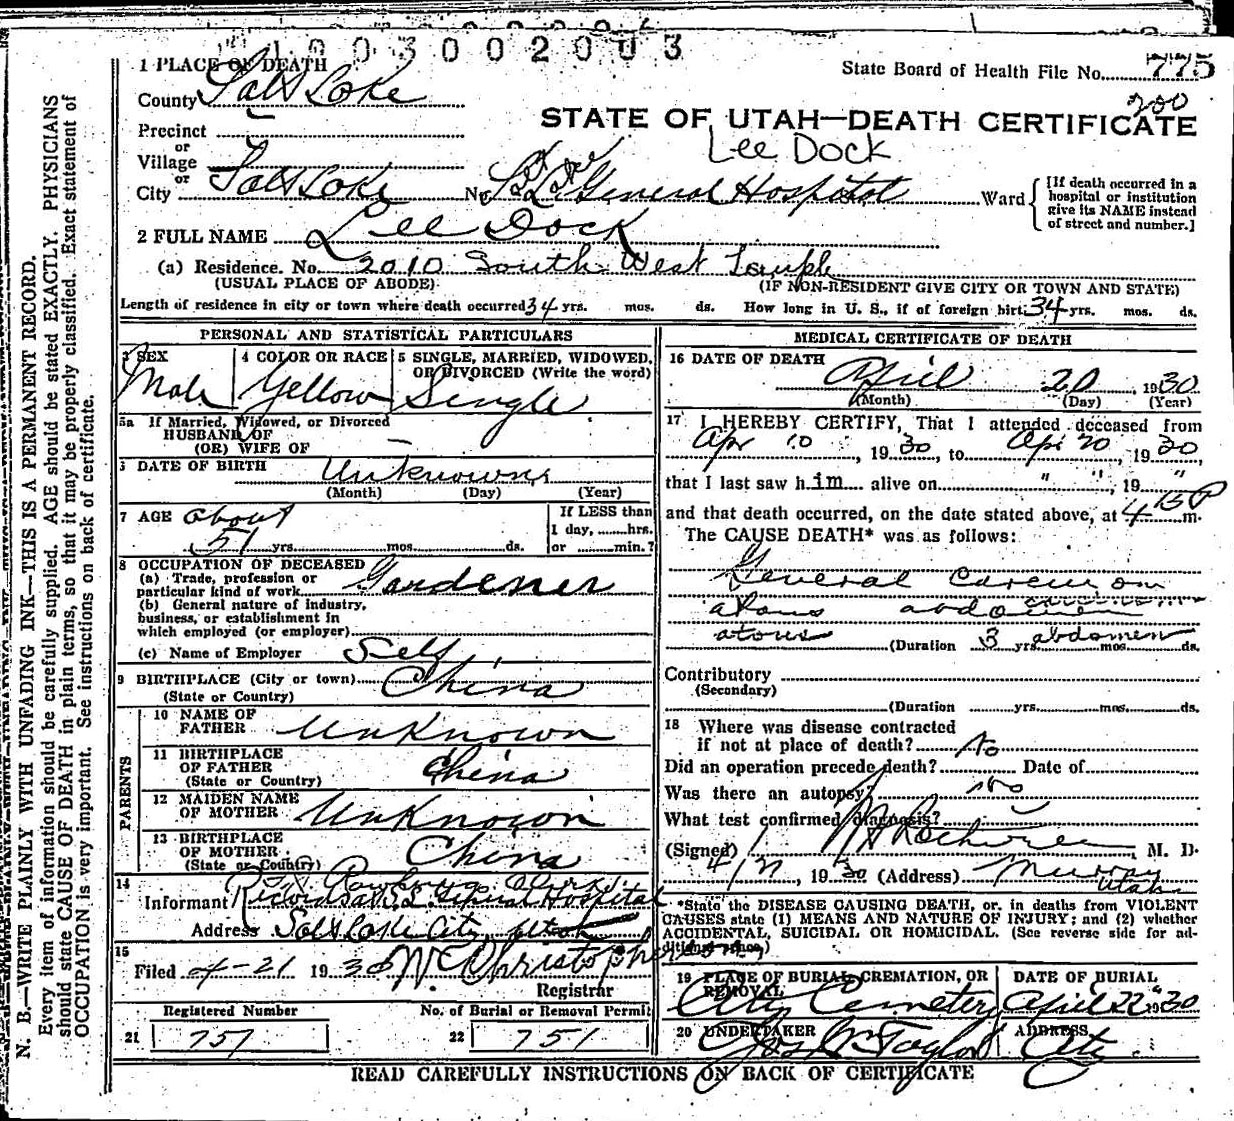 003002003
1 PLACE OF DEATH
State Board of Health File No. 775
County Salt Lake
200
STATE OF UTAH—DEATH CERTIFICATE
Precinct
Lee Dock
or
Village
or
City Salt Lake No. S. L. General Hospital Ward
[If death occurred in a hospital or institution give its NAME instead of street and number.]
2 FULL NAME Lee Dock
(a) Residence. No. 2010 South West Temple
(USUAL PLACE OF ABODE)
(IF NON-RESIDENT GIVE CITY OR TOWN AND STATE)
Length of residence in city or town where death occurred 34 yrs. mos. ds. How long in U. S., if of foreign birt. 34 yrs. mos. ds.
PERSONAL AND STATISTICAL PARTICULARS
3 SEX
Male
4 COLOR OR RACE
Yellow
5 SINGLE, MARRIED, WIDOWED, OR DIVORCED (Write the word)
Single
5a If Married, Widowed, or Divorced
HUSBAND OF
(OR) WIFE OF —
6 DATE OF BIRTH Unknown
(Month) (Day) (Year)
7 AGE about
51 yrs. mos. ds.
If LESS than
1 day, hrs.
or min.?
8 OCCUPATION OF DECEASED
(a) Trade, profession or
particular kind of work Gardener
(b) General nature of industry,
business, or establishment in
which employed (or employer)
(c) Name of Employer Self
9 BIRTHPLACE (City or town) China
(State or Country)
PARENTS
10 NAME OF
FATHER Unknown
11 BIRTHPLACE
OF FATHER China
(State or Country)
12 MAIDEN NAME
OF MOTHER Unknown
13 BIRTHPLACE
OF MOTHER China
(State or Country)
14
Informant Records S. L. General Hospital
Address Salt Lake City, Utah
15
Filed 4-21 1930 W. C. Christopherson
Registrar
Registered Number
21 757
No. of Burial or Removal Permit
22 751
MEDICAL CERTIFICATE OF DEATH
16 DATE OF DEATH
April 20, 1930
(Month) (Day) (Year)
17 I HEREBY CERTIFY, That I attended deceased from
Apr 10, 1930, to Apr 20, 1930,
that I last saw him alive on " ", 19 "
and that death occurred, on the date stated above, at 4 15 P m.
The CAUSE DEATH* was as follows:
General Carcinom
atous abdomen
atous abdomen
(Duration 3 yrs. mos. ds.
Contributory
(Secondary)
(Duration yrs. mos. ds.
18 Where was disease contracted
if not at place of death? No
Did an operation precede death? Date of
Was there an autopsy? no
What test confirmed diagnosis?
(Signed) M. D.
4/21, 1930 (Address) Murray
Utah
*State the DISEASE CAUSING DEATH, or, in deaths from VIOLENT
CAUSES state (1) MEANS AND NATURE OF INJURY; and (2) whether
ACCIDENTAL, SUICIDAL OR HOMICIDAL. (See reverse side for ad-
ditional space.)
19 PLACE OF BURIAL, CREMATION, OR REMOVAL
City Cemetery
DATE OF BURIAL
April 22 1930
20 UNDERTAKER
Jos. Wm Taylor
ADDRESS
City
READ CAREFULLY INSTRUCTIONS ON BACK OF CERTIFICATE
N. B.—WRITE PLAINLY WITH UNFADING INK—THIS IS A PERMANENT RECORD.
Every item of information should be carefully supplied. AGE should be stated EXACTLY. PHYSICIANS
should state CAUSE OF DEATH in plain terms, so that it may be properly classified. Exact statement of
OCCUPATION is very important. See instructions on back of certificate.